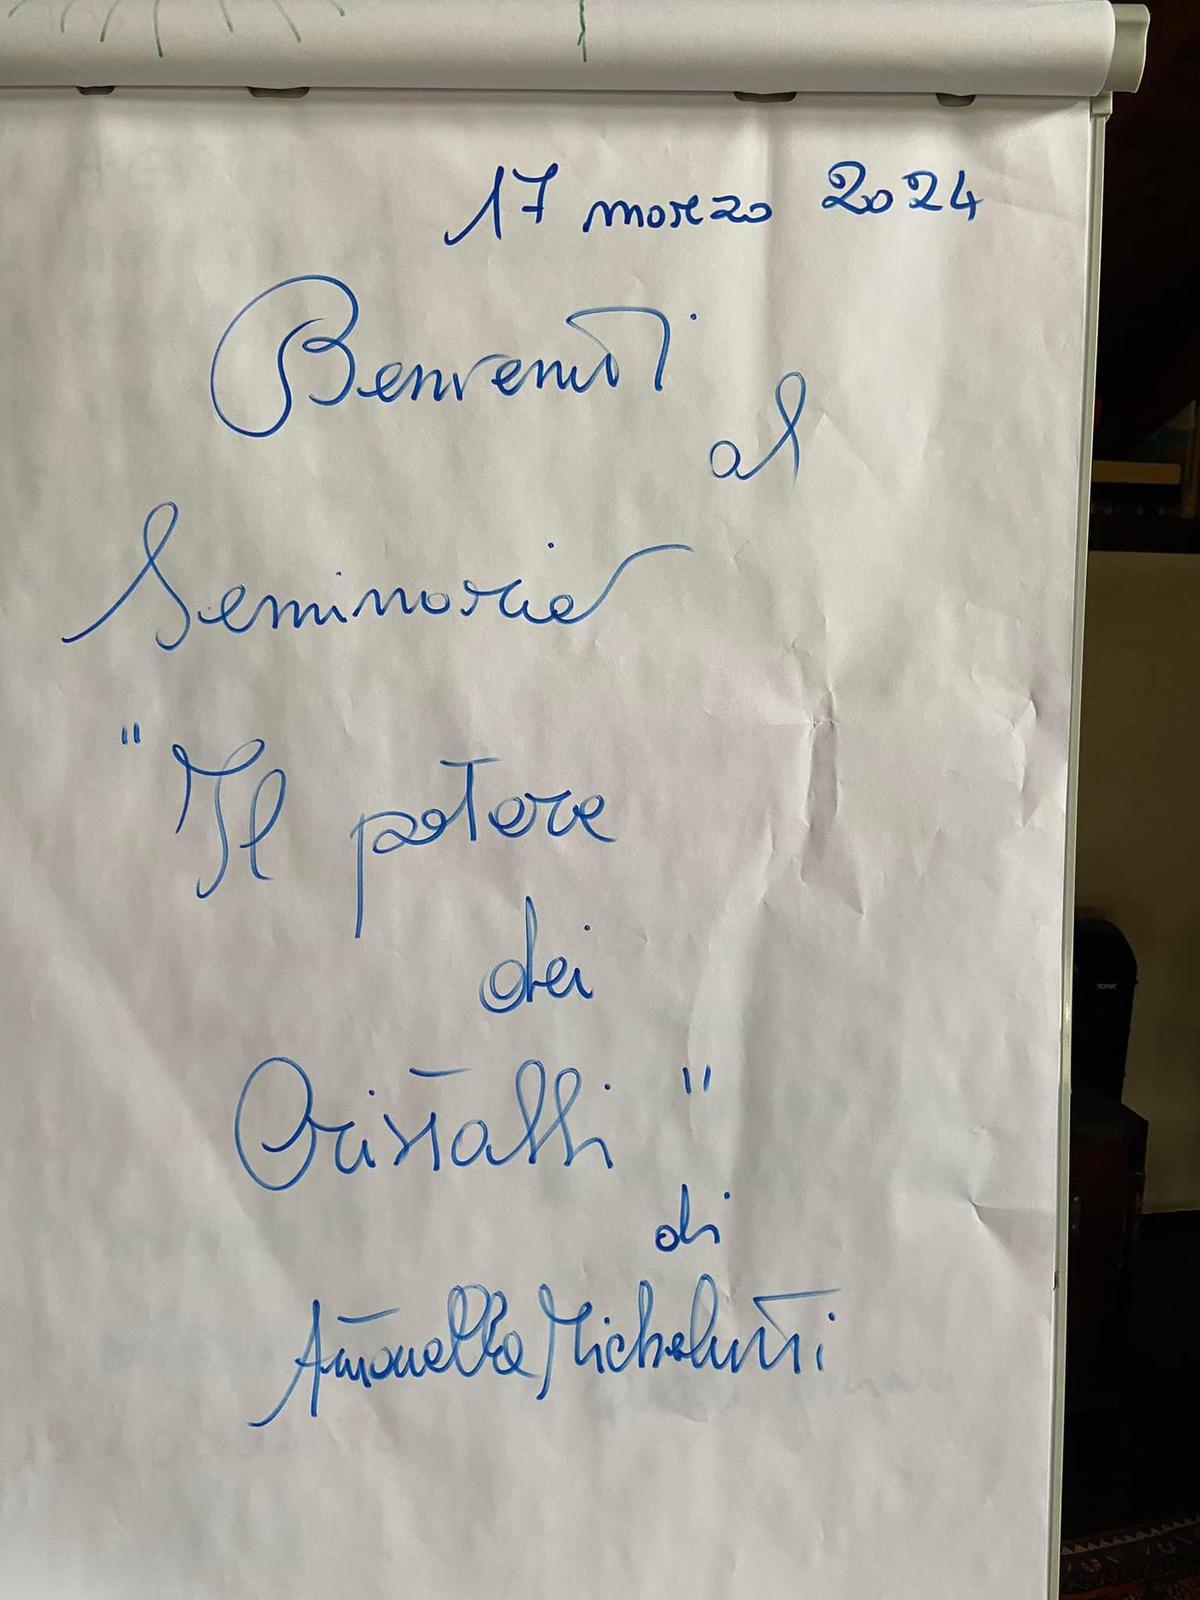 17 marzo 2024
Benvenuti
al
Seminario
"Il potere
dei
Cristalli"
di
Antonella Michelutti